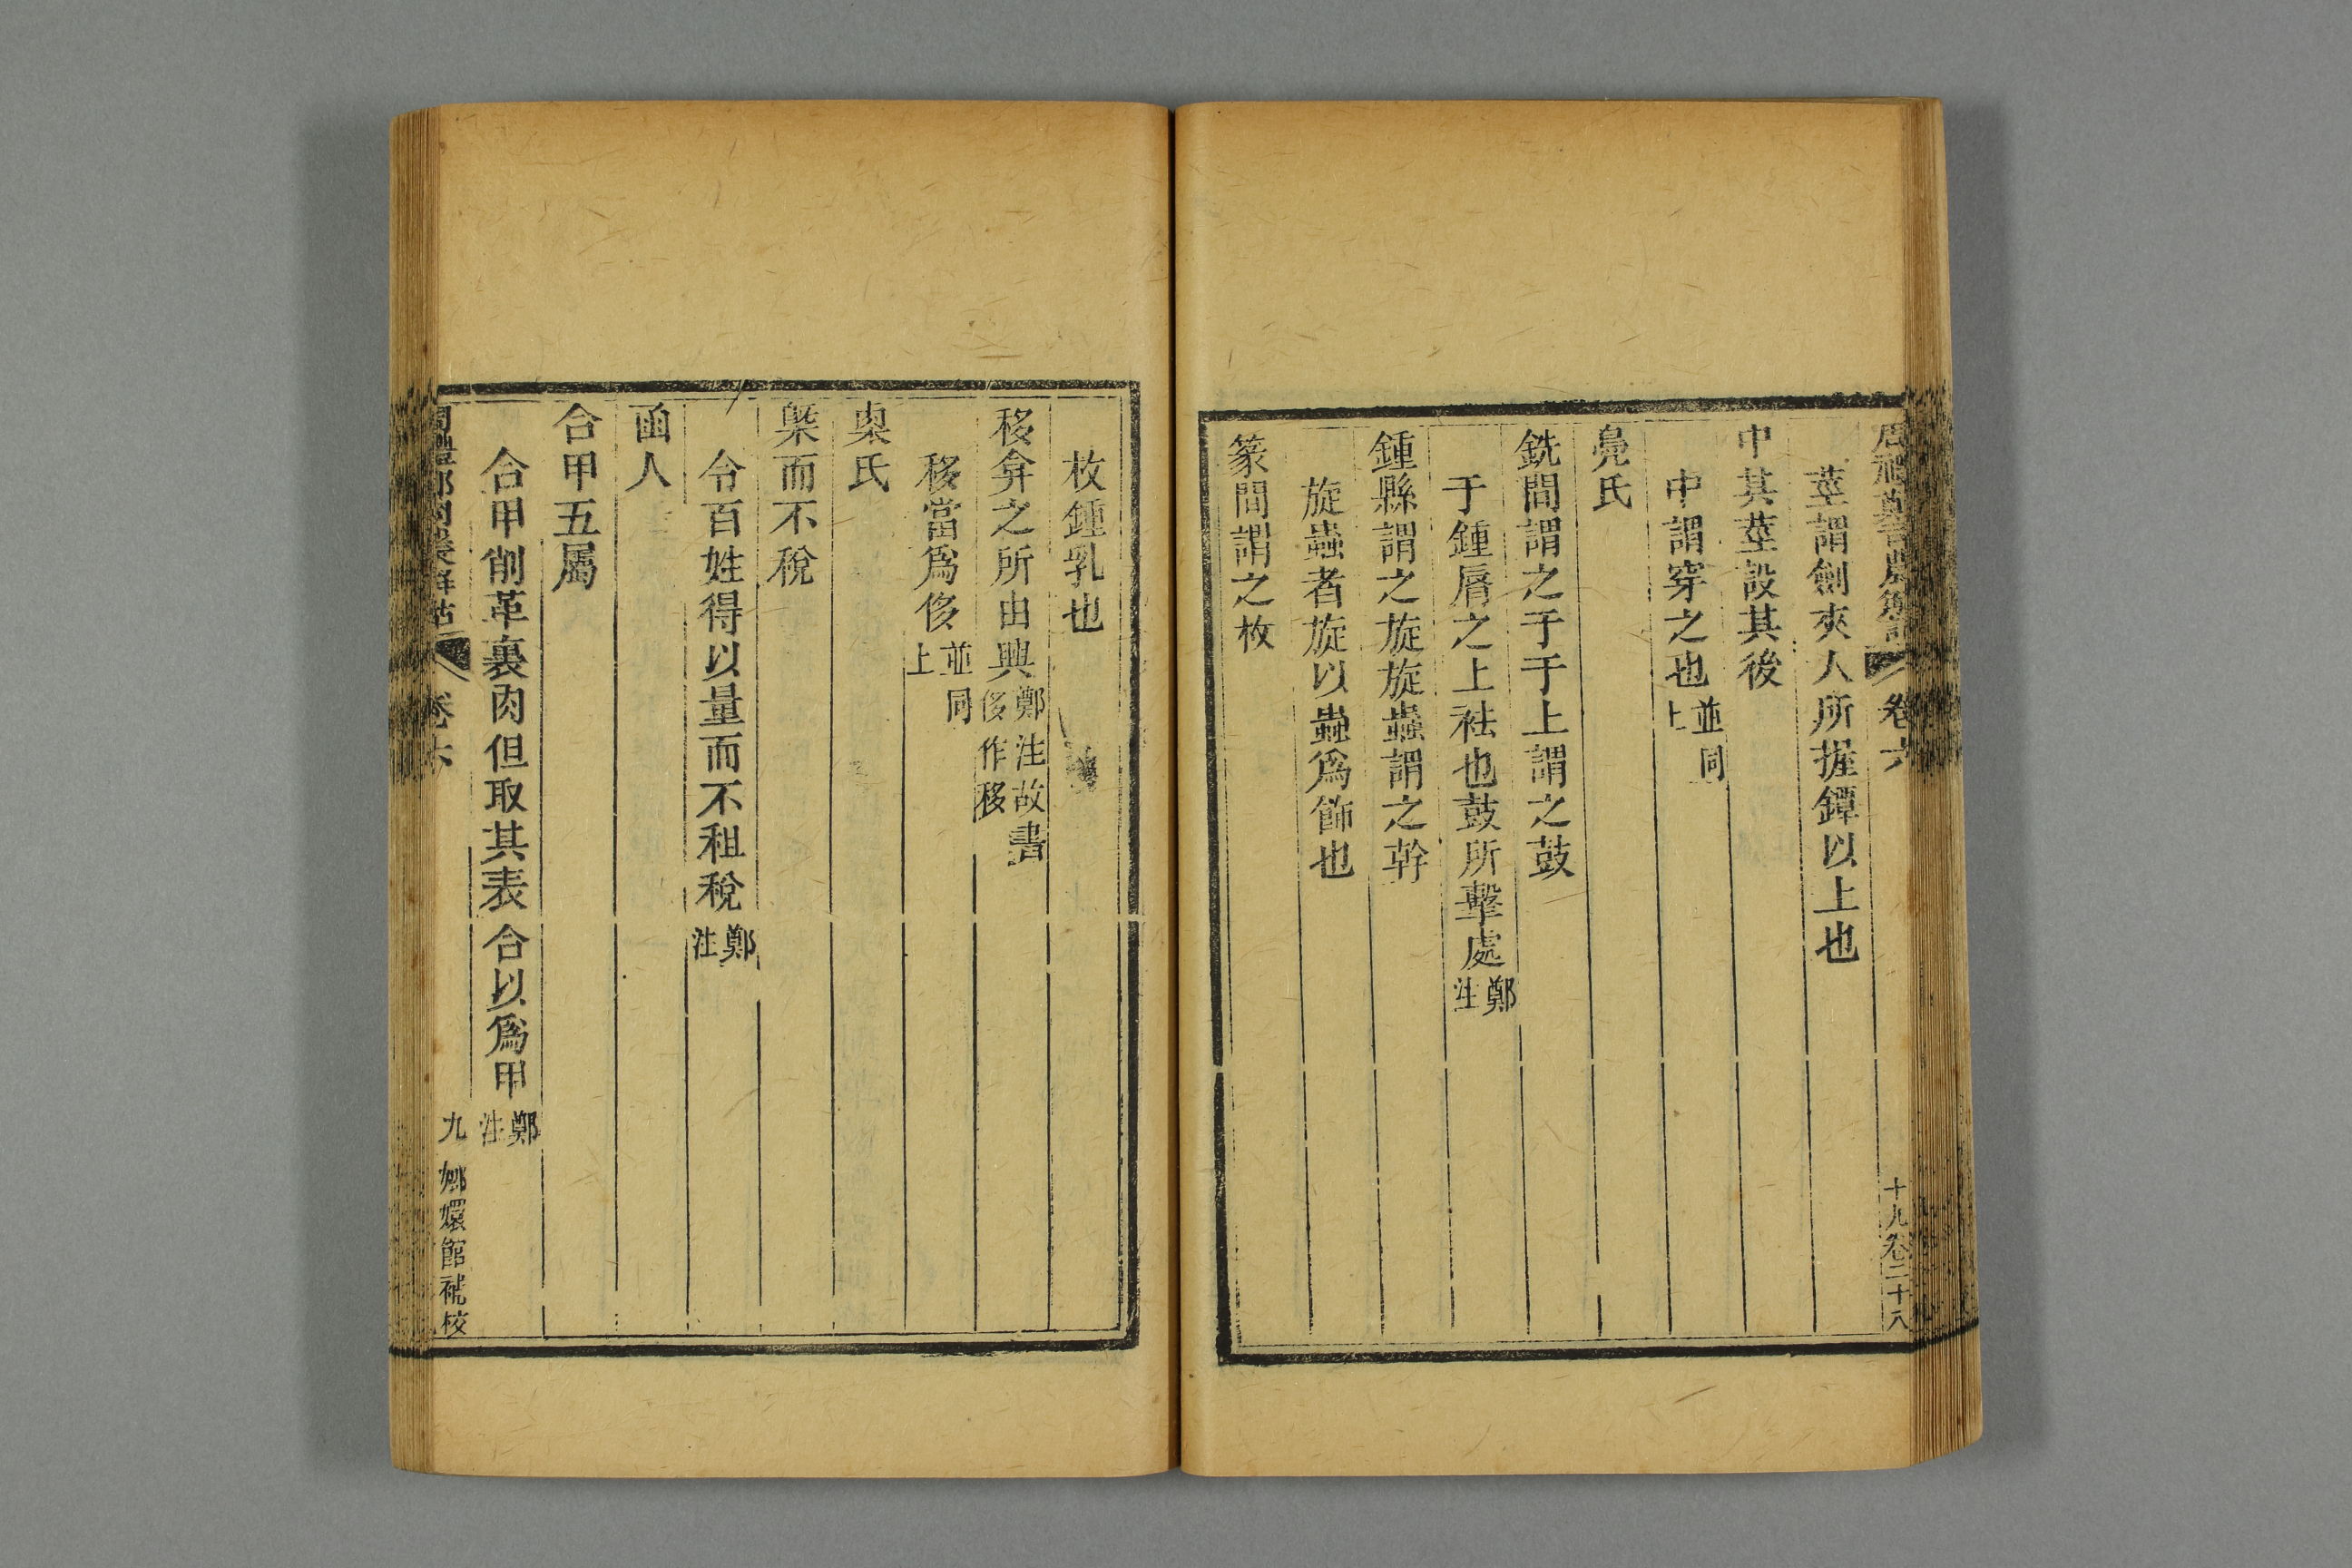 卷六
十九卷二十八
莖謂劍夾人所握鐔以上也
中其莖設其後
中謂穿之也並同上
鳧氏
銑間謂之于于上謂之鼓
于鍾脣之上袪也鼓所擊處鄭注
鍾縣謂之旋旋蟲謂之幹
旋蟲者旋以蟲爲飾也
篆間謂之枚
枚鍾乳也
移弇之所由興鄭注故書侈作移
移當爲侈並同上
㮚氏
槩而不稅
令百姓得以量而不租稅鄭注
函人
合甲五屬
合甲削革裏肉但取其表合以爲甲鄭注
卷六
九
嫏嬛館補校